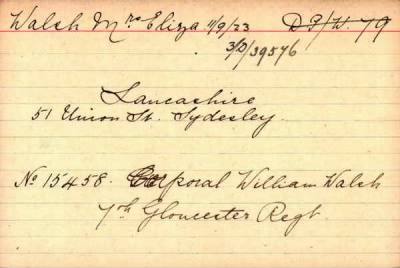 Walsh Mrs Eliza 11/9/23 D.P/W. 79
3/D/39576
Lancashire
51 Union St. Tydesley
No 15458. Corporal William Walsh
7th Gloucester Regt.